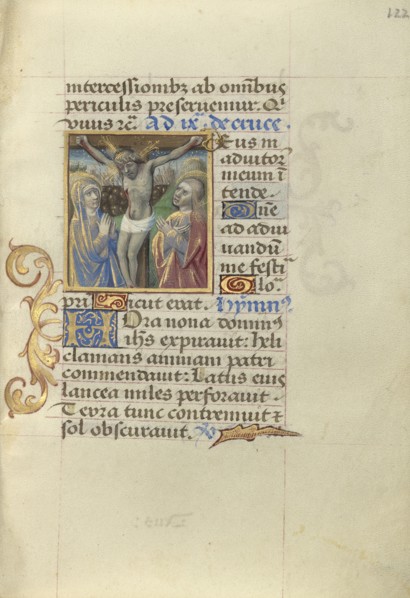 122
intercessionibꝫ ab omnibus
periculis preseruemur. Qi
viuis rc̄. Ad ixᵃ. de cruce.
Deus in
adiutor̄
meum ī
tende.
Dn̄e
ad adiu
uandū
me festiᵃ
Glo.ᵃ
pri Sicut erat. Hymn⁹
Hora nona domin⁹
ihs expirauit: heli
clamans animam patri
commendauit: Latus eius
lancea miles perforauit.
Terra tunc contremuit ⁊
sol obscurauit.